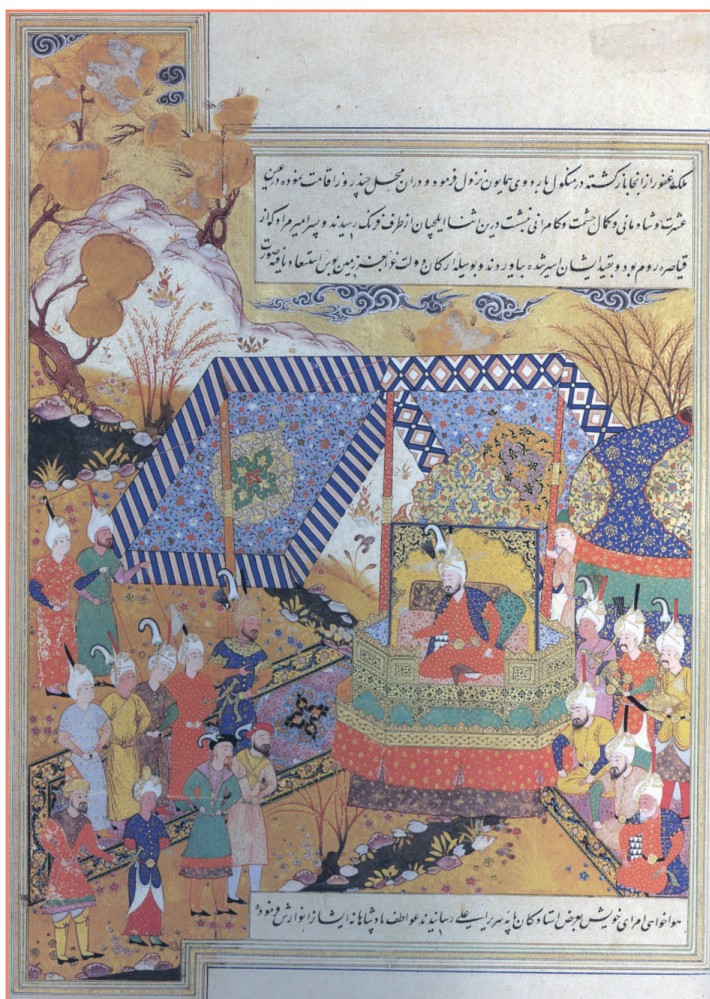 ملکه غفور از انجا بازگشته در سکول باردوی همایون نزول فرمود و دران محل چند روز اقامت نموده در عین
عشرت و شادمانی و کمال حشمت و کامرانی نشست درین اثنا ایلچیان از طرف فرنک رسیدند و پسر امیر مراد که از
قیاصره روم بود و بقید ایشان اسیر شده بیاوردند و بوسیله ارکان دولت زمین بوس استسعاد یافته
هواخواهی امرای خویش بعرض استادکان پایه سریر اعلی رسانیدند عواطف پادشاهانه ایشانرا نوازش فرموده